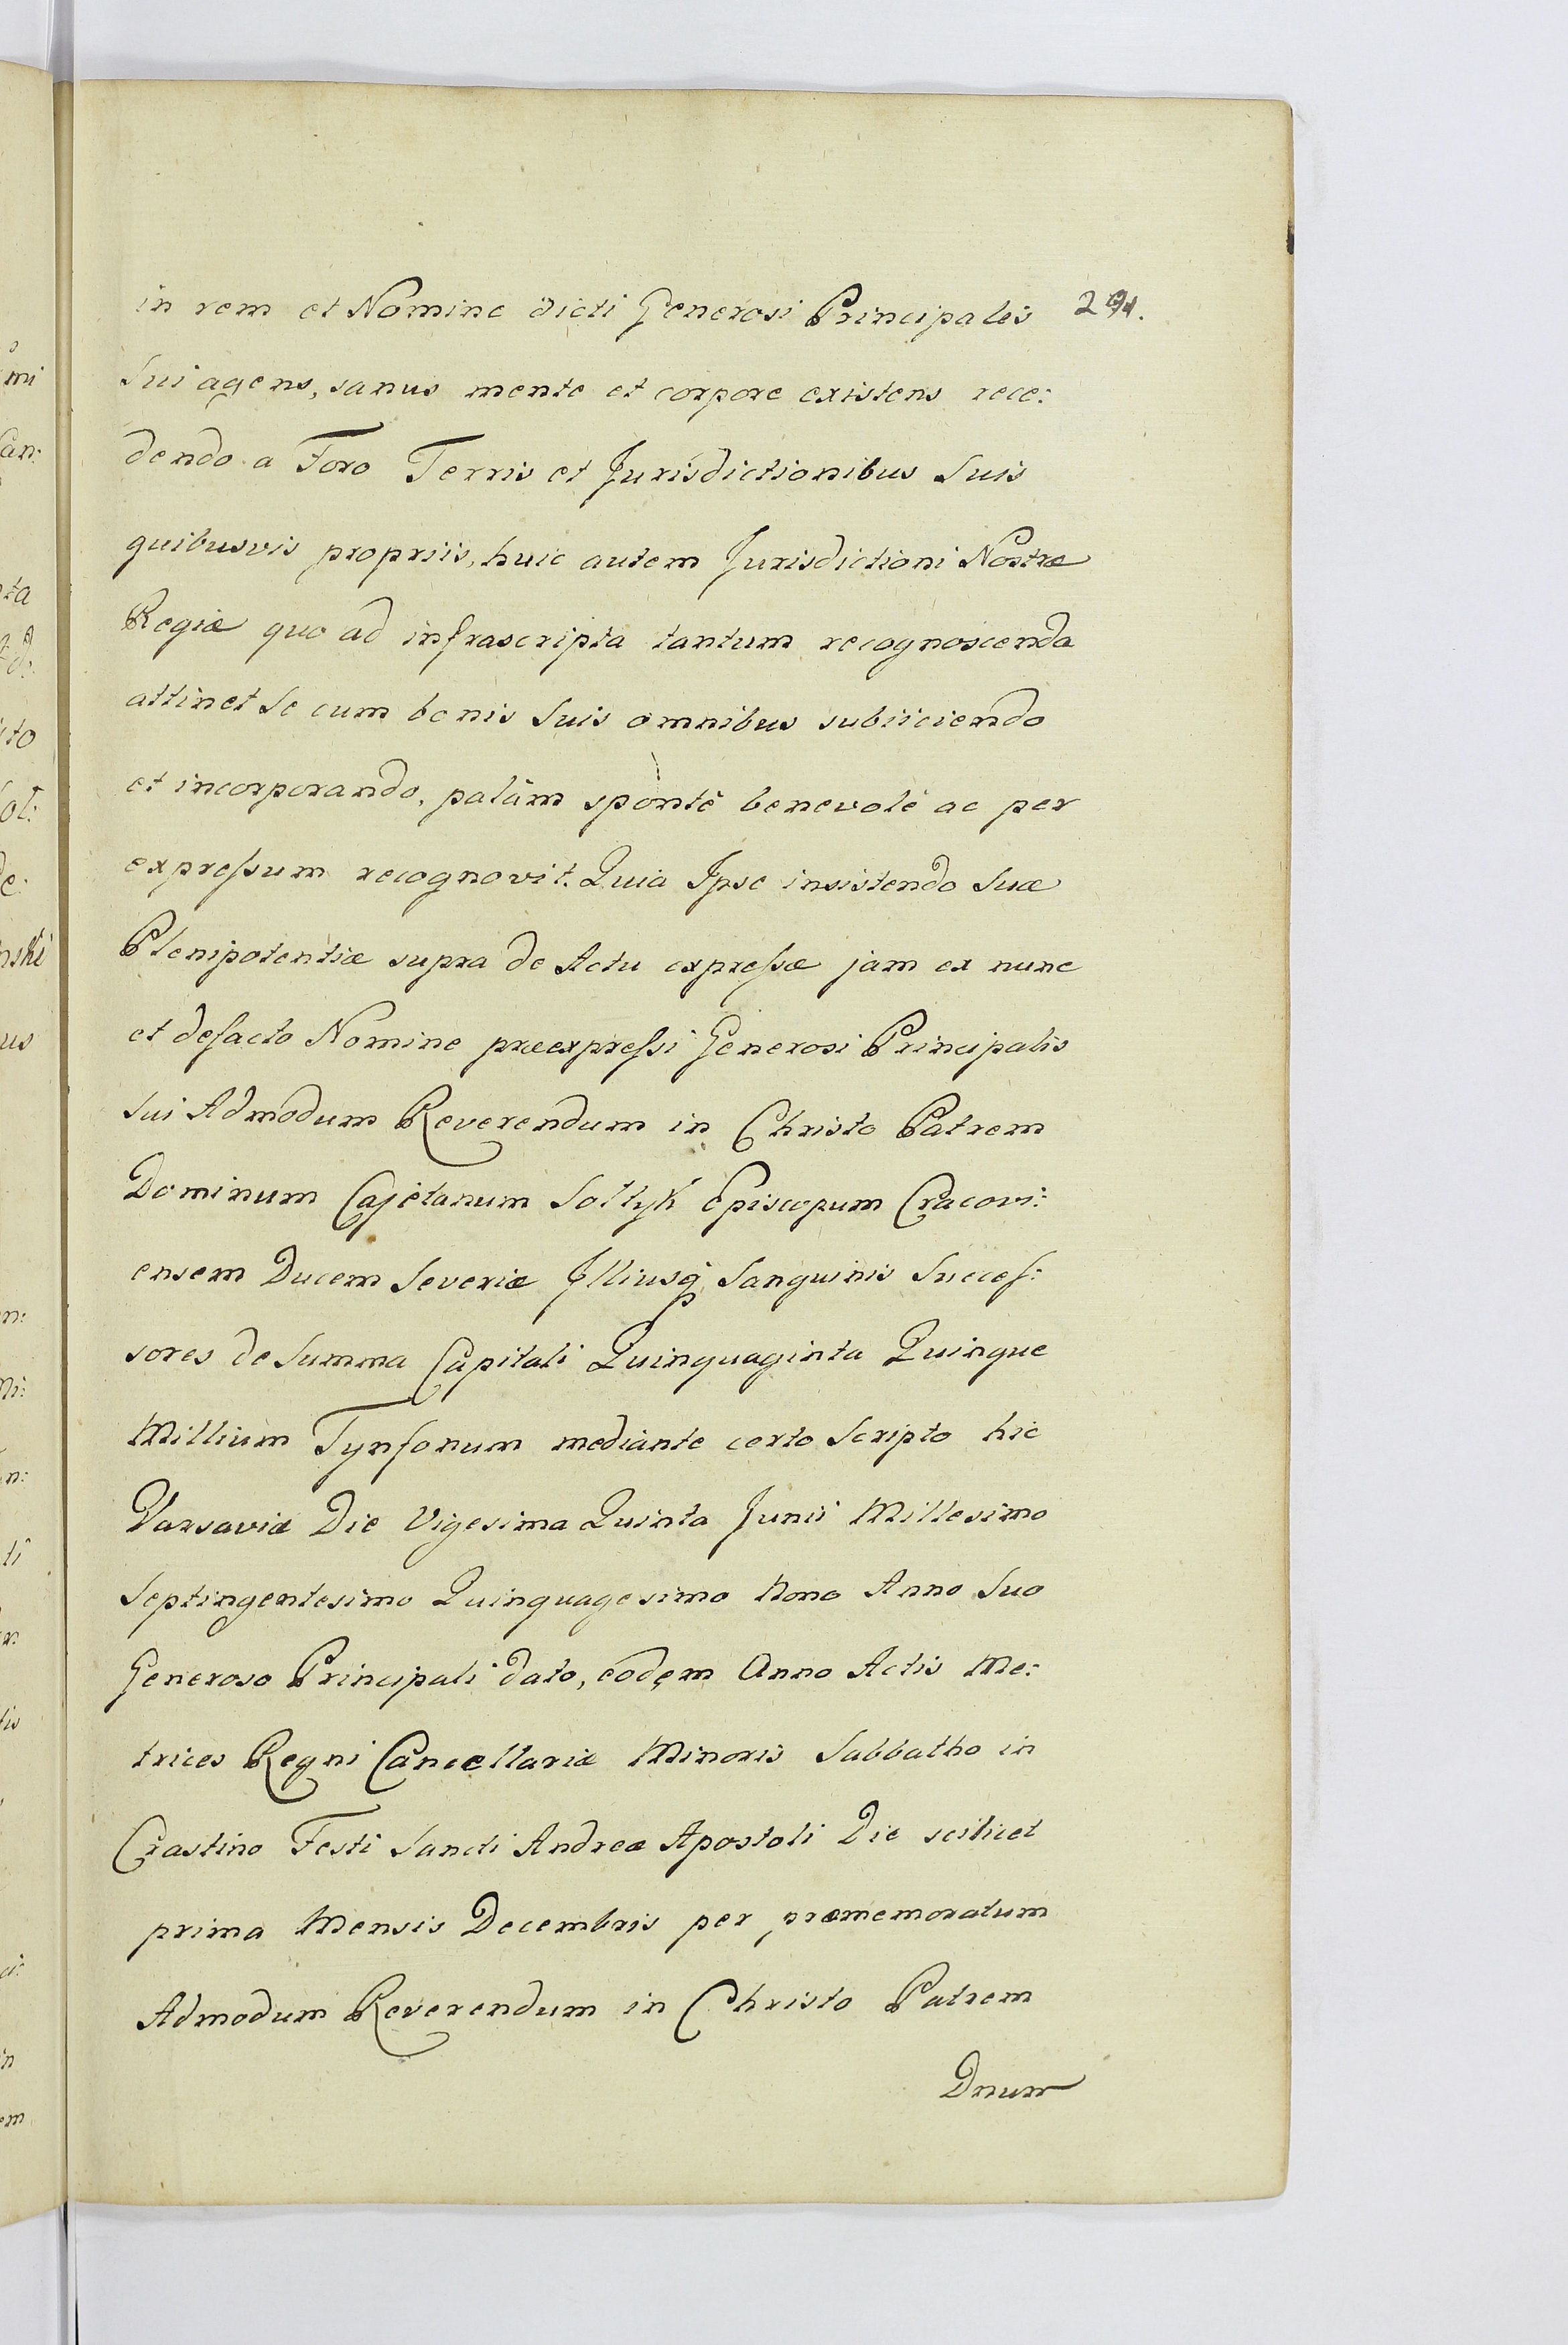 in rem et Nomine dicti Generosi Principalis
Sui agens, sanus mente et corpore existens rece:
dendo a Foro Terris et Jurisdictionibus Suis
quibusvis propriis, huic autem Jurisdictioni Nostræ
Regiæ quo ad infrascripta tantum recognoscenda
attinet Se cum bonis Suis omnibus subiiciendo
et incorporando, palàm spontè benevolè ac per
expreſsum recognovit. Quia Ipse insistendo Suæ
Plenipotentiæ supra de Actu expreſsæ jam ex nunc
et defacto Nomine præexpreſsi Generosi Principalis
Sui Admodum Reverendum in Christo Patrem
Dominum Cajetanum Sołtyk Episcopum Cracovi:
ensem Ducem Severiæ Illiusq́ Sanguinis Succeſ:
sores de Summa Capitali Quinquaginta Quinque
Millium Tynfonum mediante certo Scripto hic
Varsaviæ Die Vigesima Quinta Junii Millesimo
Septingentesimo Quinquagesimo Nono Anno Suo
Generoso Principali dato, eodem Anno Actis Me:
trices Regni Cancellariæ Minoris Sabbatho in
Crastino Festi Sancti Andreæ Apostoli Die scilicet
prima Mensis Decembris per præmemoratum
Admodum Reverendum in Christo Patrem
Dnum